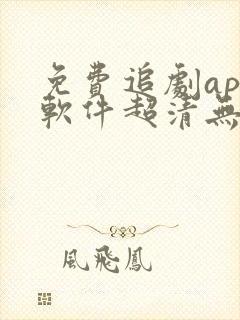 免費追劇ap
軟件超清無
風飛鳳